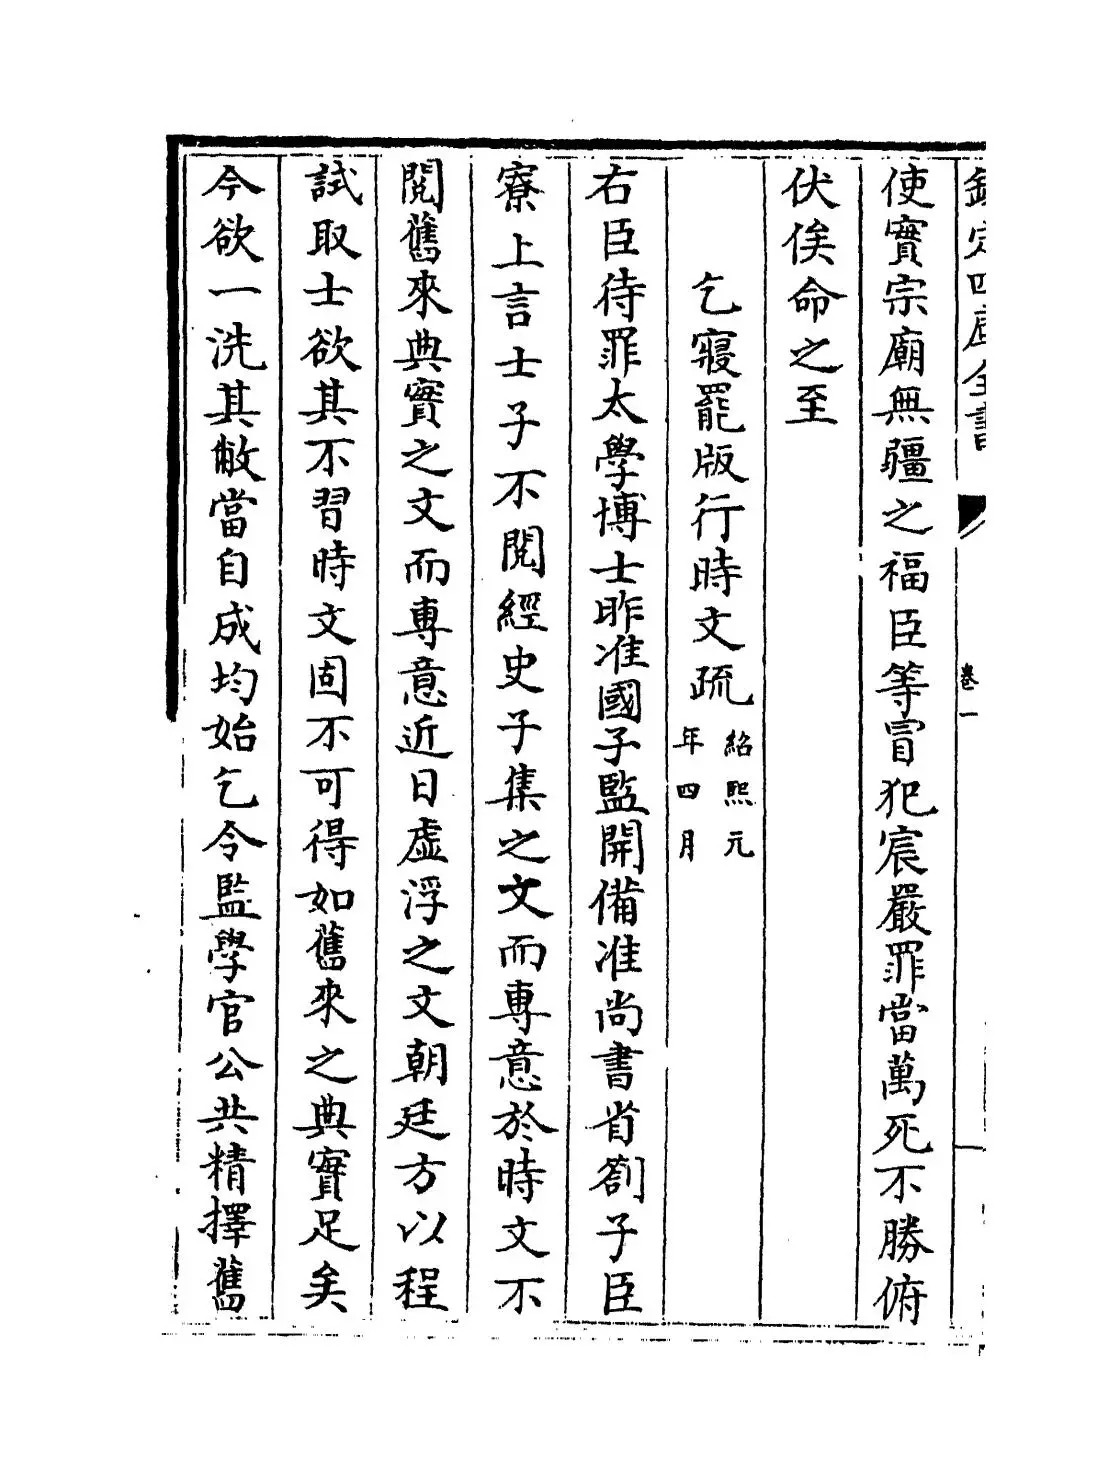 欽定四庫全書
卷一
使實宗廟無疆之福臣等冒犯宸嚴罪當萬死不勝俯
伏俟命之至
乞寢罷版行時文疏紹熙元年四月
右臣待罪太學博士昨准國子監開備准尚書省劄子臣
寮上言士子不閱經史子集之文而專意於時文不
閱舊來典實之文而專意近日虛浮之文朝廷方以程
試取士欲其不習時文固不可得如舊來之典實足矣
今欲一洗其敝當自成均始乞令監學官公共精擇舊